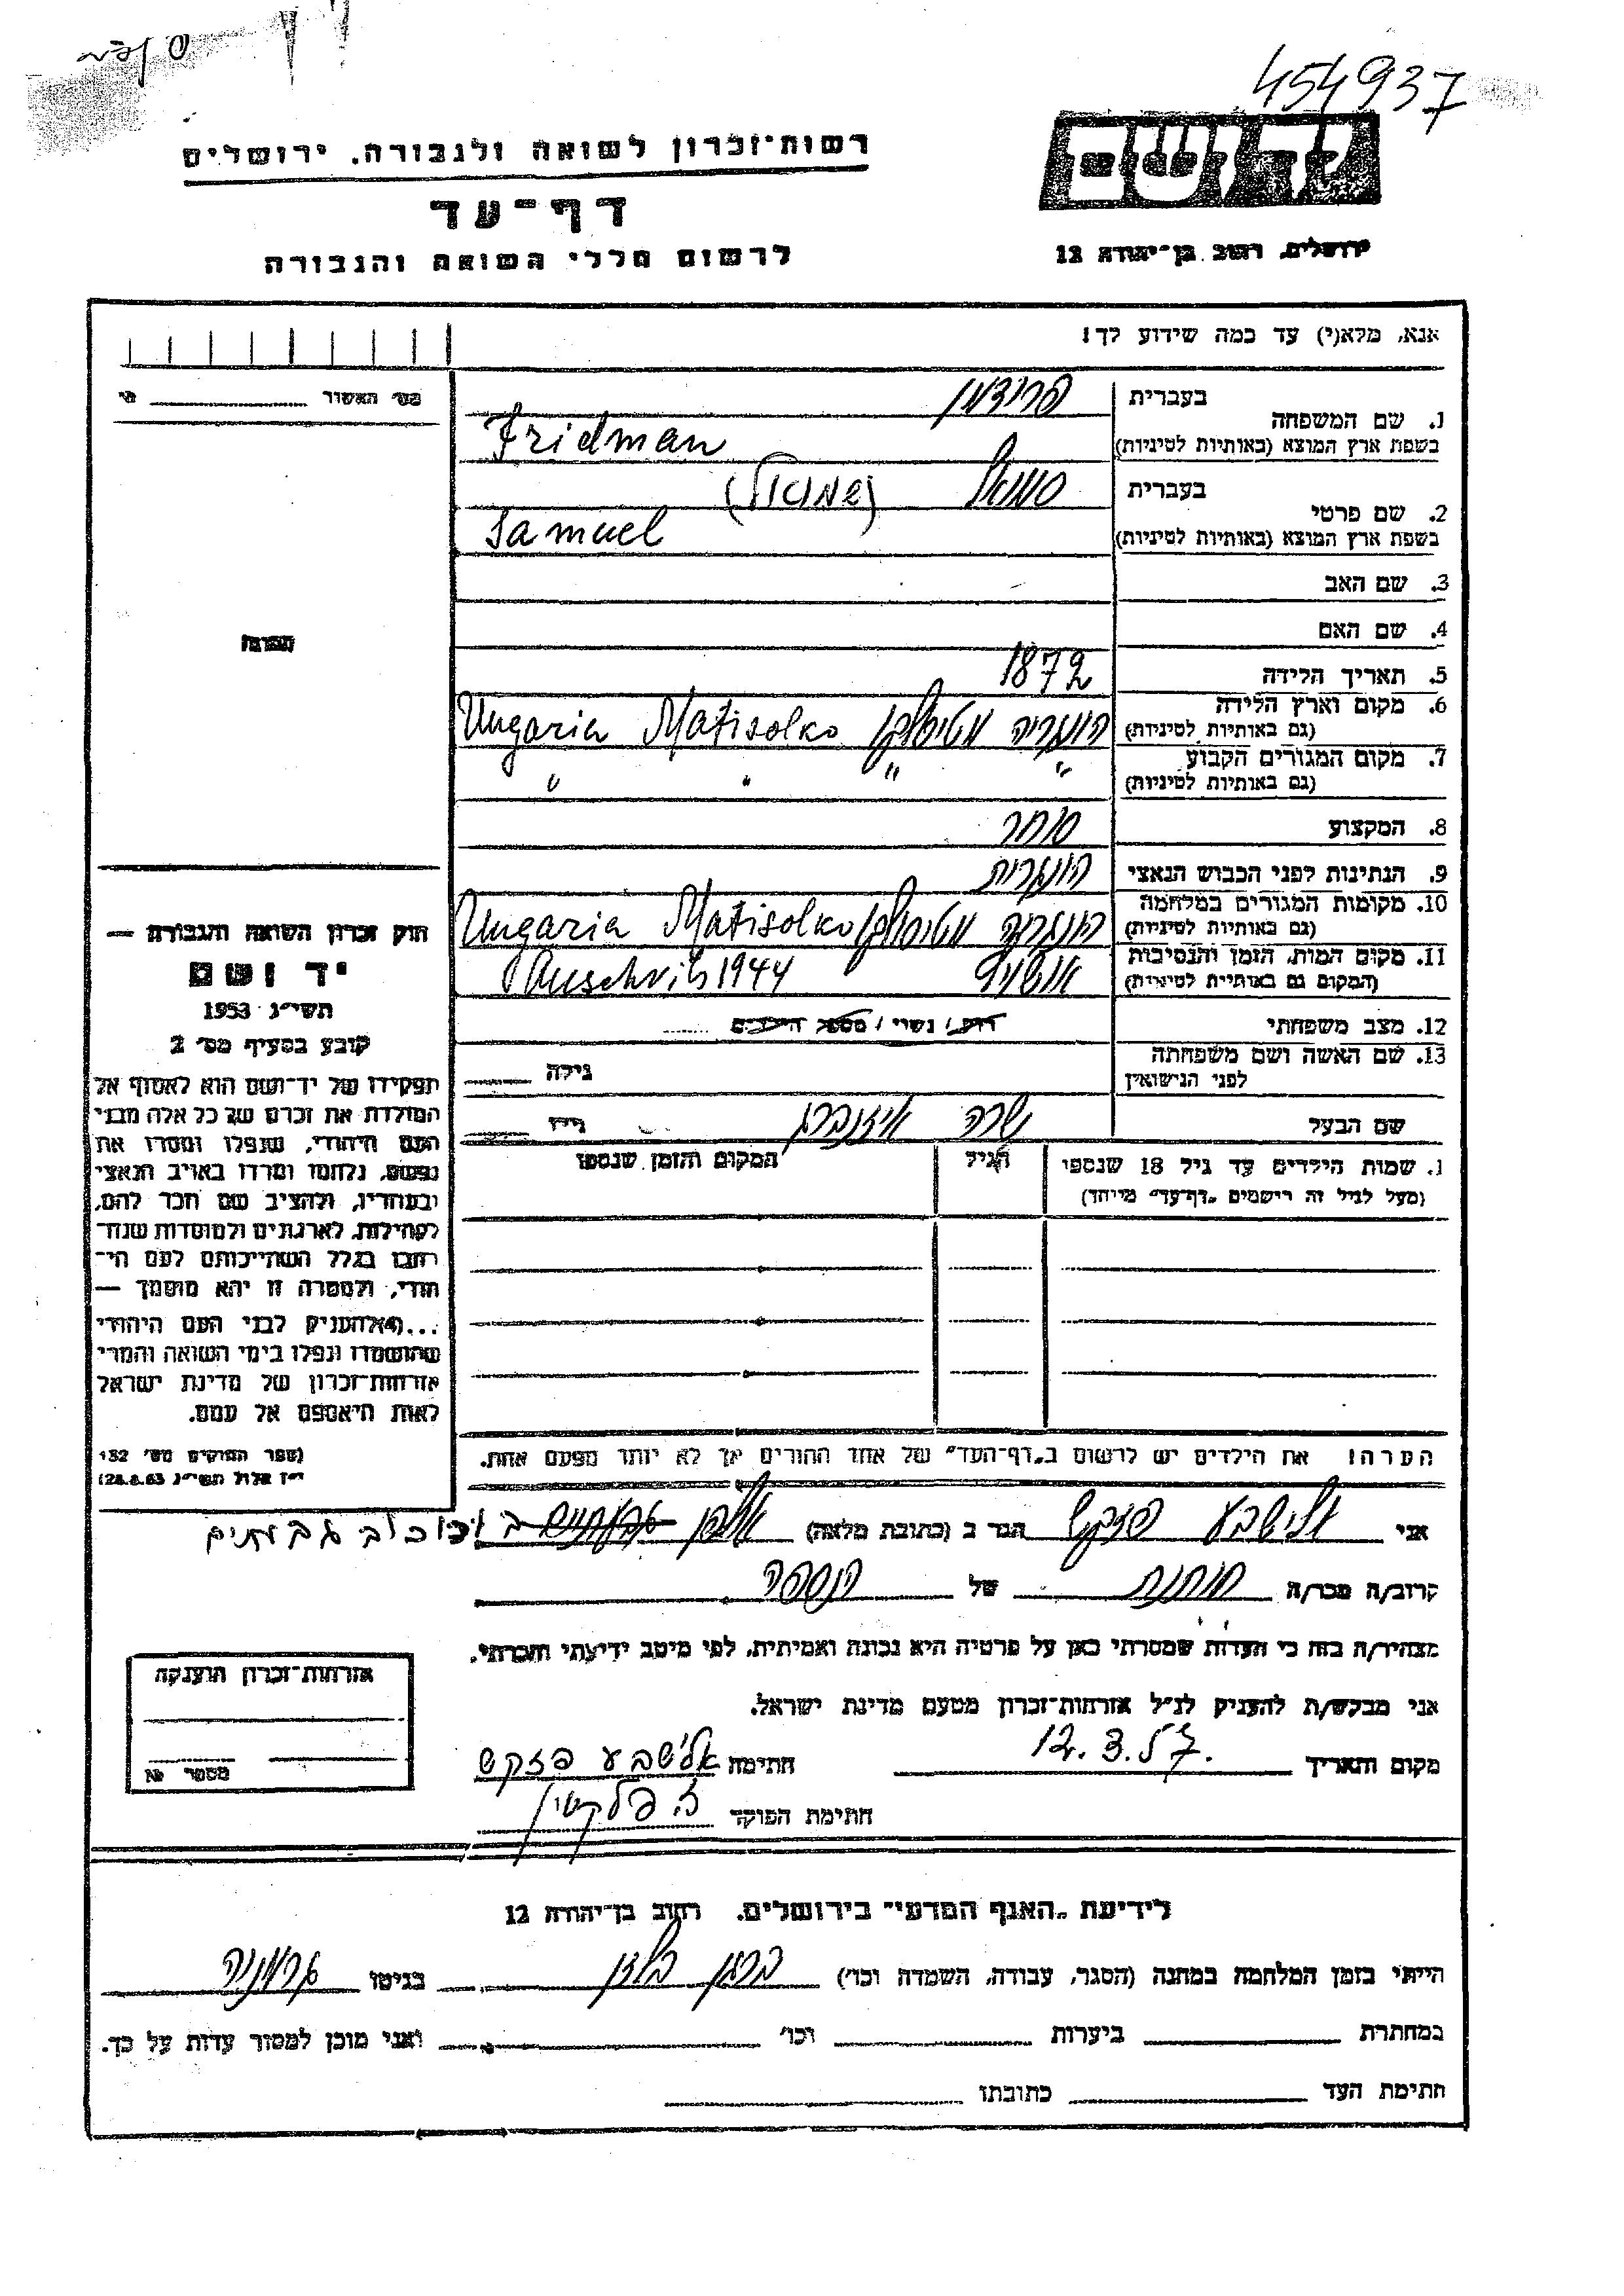 454937
רשות־זכרון לשואה ולגבורה, ירושלים
יד ושם
דף־עד
ירושלים, רחוב בן־יהודה 12
לרשום חללי השואה והגבורה
אנא, מלא(י) עד כמה שידוע לך!
מס' האשור
1. שם המשפחה בעברית פרידמן
בשפת ארץ המוצא (באותיות לטיניות) Fridman
2. שם פרטי בעברית סמואל (שמואל)
בשפת ארץ המוצא (באותיות לטיניות) Samuel
3. שם האב
4. שם האם
תמונה
5. תאריך הלידה 1872
6. מקום וארץ הלידה (גם באותיות לטיניות) הונגריה Ungaria Matisolko
7. מקום המגורים הקבוע (גם באותיות לטיניות) " " " "
8. המקצוע סוחר
9. הנתינות לפני הכבוש הנאצי הונגרית
10. מקומות המגורים במלחמה (גם באותיות לטיניות) הונגריה Ungaria Matisolko
11. מקום המות, הזמן והנסיבות (המקום גם באותיות לטיניות) Auschvits 1944
12. מצב משפחתי רוק / נשוי / מספר הילדים
13. שם האשה ושם משפחתה לפני הנישואין גילה
שם הבעל שרה אייזנברג גילו
1. שמות הילדים עד גיל 18 שנספו הגיל המקום והזמן שנספו
(מעל לגיל זה רישמים "דף־עד" מייחד)
הערה! את הילדים יש לרשום ב"דף־העד" של אחד ההורים אך לא יותר מפעם אחת.
חוק זכרון השואה והגבורה —
יד ושם
תשי"ג 1953
קובע בסעיף מס' 2
תפקידו של יד־ושם הוא לאסוף אל
המולדת את זכרם של כל אלה מבני
העם היהודי, שנפלו ומסרו את
נפשם, נלחמו ומרדו באויב הנאצי
ובעוזריו, ולהציב שם וזכר להם,
לקהילות, לארגונים ולמוסדות שנח־
רבו בגלל השתייכותם לעם הי־
הודי, ולמטרה זו יהא מוסמך —
...(4) להעניק לבני העם היהודי
שהושמדו ונפלו בימי השואה והמרי
אזרחות־זכרון של מדינת ישראל
לאות היאספם אל עמם.
(ספר החוקים מס' 132
י"ז אלול תשי"ג 28.8.53)
אני אלישבע פזקש הגר ב (כתובת מלאה)
קרוב/ה מכר/ה של הנספה
מצהיר/ה בזה כי העדות שמסרתי כאן על פרטיה היא נכונה ואמיתית, לפי מיטב ידיעתי והכרתי.
אני מבקש/ת להעניק לנ"ל אזרחות־זכרון מטעם מדינת ישראל.
מקום ותאריך 12.3.57. חתימה אלישבע פזקש
חתימת הפוקד
אזרחות־זכרון הוענקה
מספר №
לידיעת "האגף המדעי" בירושלים, רחוב בן־יהודה 12
הייתי בזמן המלחמה במחנה (הסגר, עבודה, השמדה וכו') ברגן בלזן בגיטו
במחתרת ביערות וכו' ואני מוכן למסור עדות על כך.
חתימת העד כתובתו